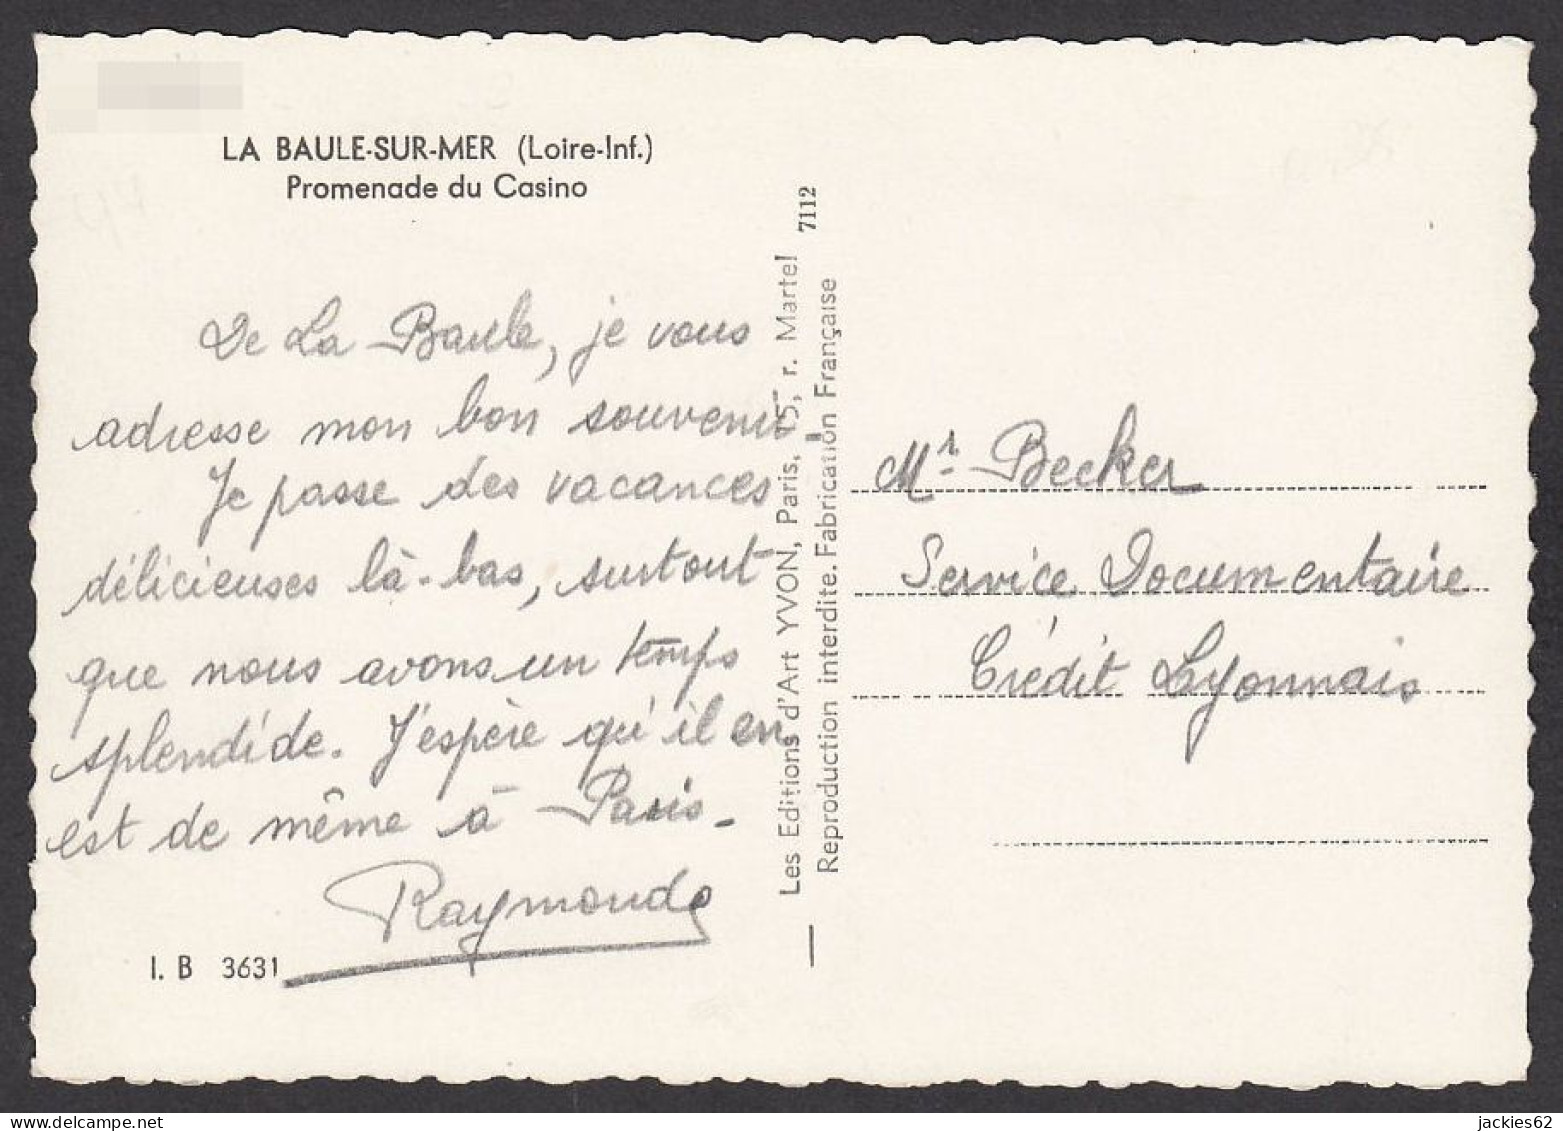 LA BAULE-SUR-MER (Loire-Inf.)
Promenade du Casino
De La Baule, je vous
adresse mon bon souvenir
Je passe des vacances
délicieuses là-bas, surtout
que nous avons un temps
splendide. J'espère qu'il en
est de même à Paris.
Raymonde
I. B 3631
Les Editions d'Art YVON, Paris, 15, r. Martel
7112
Reproduction interdite. Fabrication Française
Mr. Becker
Service Documentaire
Crédit Lyonnais
delcampe.net
jackies62